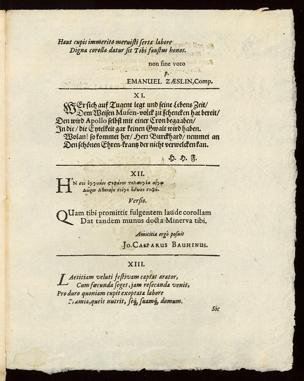 Haut cupis immeritò meruisti serta labore
Digna corolla datur sit Tibi faustus honos.
non sine voto
p.
EMANUEL ZÆSLIN, Comp.
XI.
Wer sich auf Tugent legt und seine Lebens Zeit/
Dem Weisen Musen-volck zu schencken hat bereit/
Den wird Apollo selbst mit einer Cron begaben/
In der/ die Eytelkeit gar keinen Gwalt wird haben.
Wolan! so kommet her/ Herr Burckhard/ nemmet an
Den schönen Ehren-krantz der nicht verwelcken kan.
H. H. F.
XII.
Versio.
QUam tibi promittit fulgentem laude corollam
Dat tandem munus docta Minerva tibi,
Amicitiæ ergò posuit
JO. CASPARUS BAUHINUS.
XIII.
LÆtitiam veluti festivam captat arator,
Cum fæcunda seges, jam resecanda venit,
Pro duro quoniam cupit exoptata labore
præmia, queis nutrit, seq́;, suamq́;, domum.
Sic